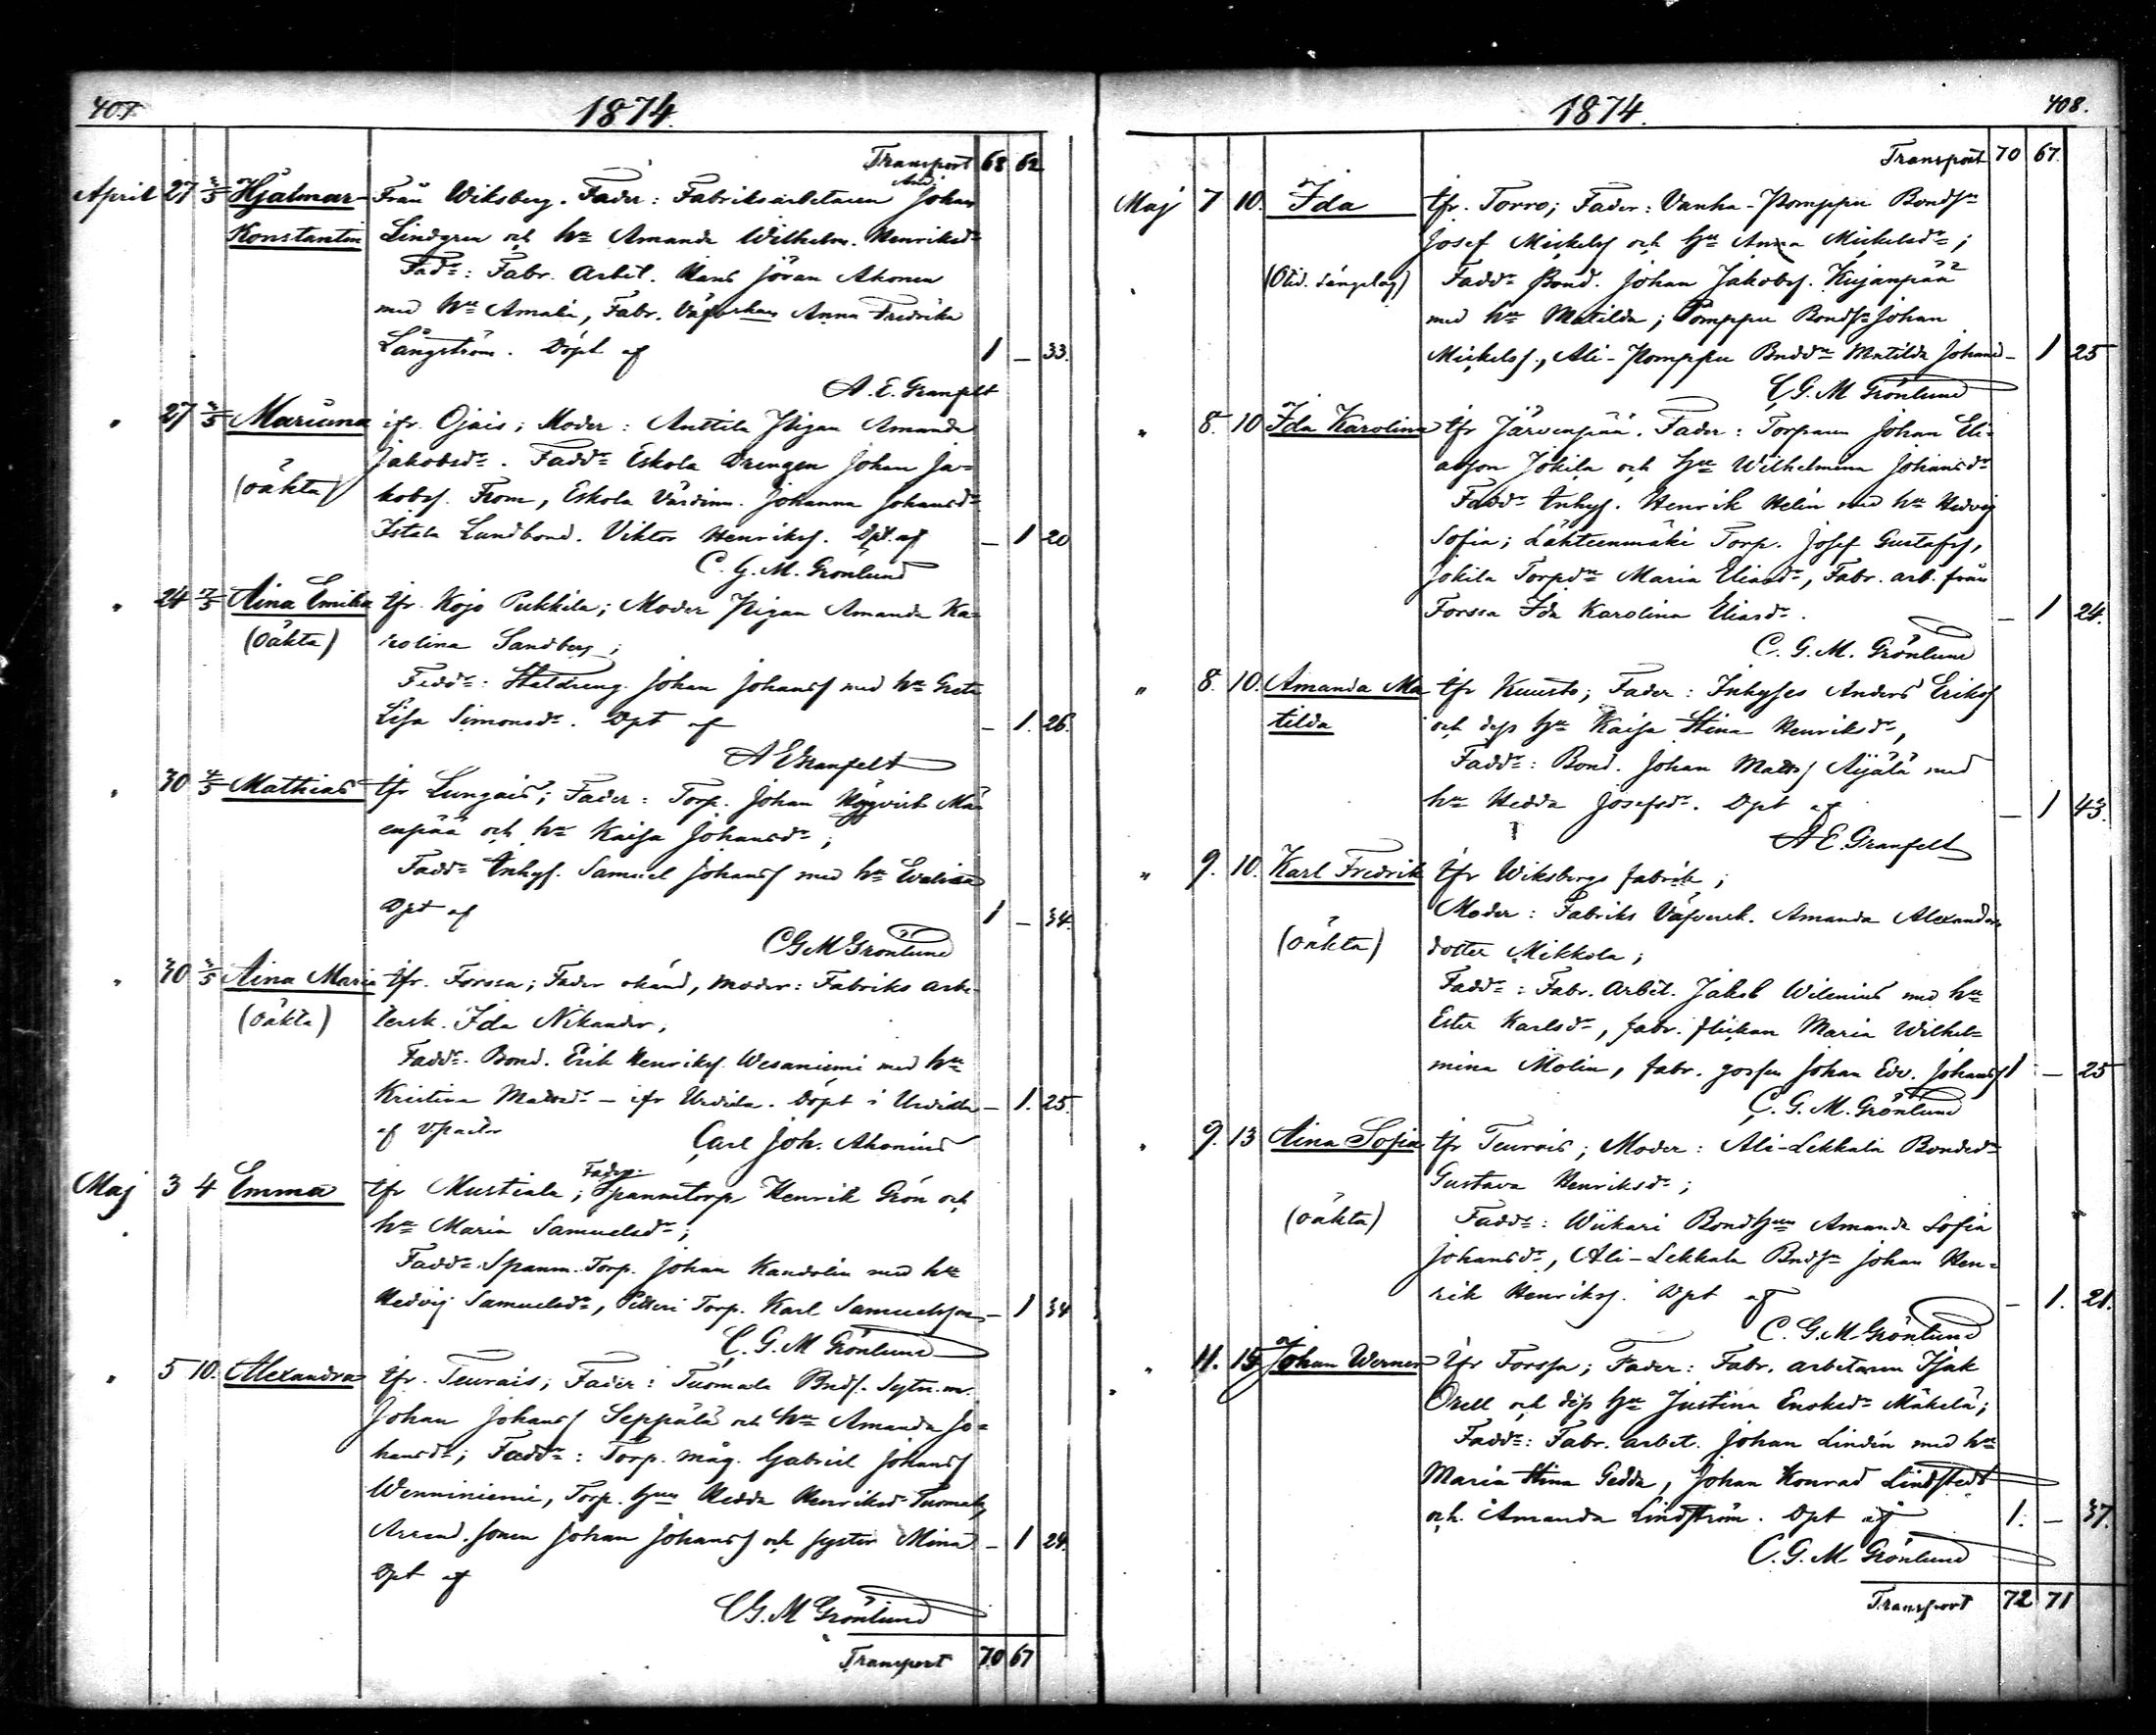 407.
1874.
Transport 68 62
April 27 3/5 Hjalmar Från Wiksberg. Fader: Fabriksarbetaren Johan
Konstantin Lindgren och hu Amanda Wilhelm. Henriksdr
Fadr: Fabr. Arbet. Hans Jöran Ahonen
med hu Amalia, Fabr. Anna Fredrika
Långström. Döpt af 1 — 33.
A. E. Granfelt
" 27 3/5 Mariana ifr. Ojais; Moder: Anttila Pigan Amanda
Jakobsdr. Faddr Eskola Drengen Johan Ja-
(oäkta) kobss. From, Eskola Värdinn. Johanna Johansdr
Lundbond. Viktor Henrikss. Dpt. af — 1 20
C. G. M. Grönlund
" 24 Aina Emilia ifr. Kojo Pukkila; Moder Pigan Amanda Ka-
(oäkta) rolina Sandberg;
Faddr: Staldreng. Johan Johanss med hu Greta
Lisa Simonsdr. Dpt af — 1. 26.
A E Granfelt
" 30 Mathias ifr Lungais; Fader: Torp. Johan Högqvist Mä-
enpää och hu Kaisa Johansdr;
Faddr Inhys. Samuel Johanss med hu Evelina
Dpt af 1 — 34.
C G M Grönlund
" 30 3/5 Aina Maria ifr. Forssa; Fader okänd, moder: Fabriks arbe-
(oäkta) tersk. Ida Nikander,
Faddr. Bond. Erik Henrikss. Wesaniemi med hu
Kristina Matsdr — ifr Urdiala. Döpt i Urdiala — 1. 25.
af Carl Joh. Ahonius
Maj 3 4 Emma ifr Mustiala; Fader: Spanmtorp Henrik Grön och
hu Maria Samuelsdr;
Faddr Spanm. Torp. Johan Kandolin med hu
Hedvig Samuelsdr, Torp. Karl Samuelsson — 1 34
C. G. M Grönlund
" 5 10. Alexandra ifr. Teurois; Fader: Tuomala Bnds.
Johan Johanss Seppälä och hu Amanda Jo-
hansdr; Faddr: Torp. måg. Gabriel Johanss
Wenniniemi, Torp. Hun Hedda Henriksdr Tuomala,
Arrend. sonen Johan Johanss och syster Mina — 1 24.
Dpt af
C G. M Grönlund
Transport 70 67
1874.
408.
Transport 70 67.
Maj 7 10. Ida ifr. Torro; Fader: Vanha-Pomppu Bondsn
Josef Mickelss och hu Anna Mickelsdr;
Faddr Bond. Johan Jakobss. Kujanpää
med hu Matilda; Pomppu Bondsn Johan
Mickelss., Ali-Pomppu Bnddr Matilda Johansd — 1 25
C. G. M Grönlund
" 8. 10 Ida Karolina ifr Järvenpää. Fader: Torparen Johan Eli-
asson Jokila och hu Wilhelmina Johansdr
Faddr Inhys. Henrik Helin med hu Hedvig
Sofia; Lähteenmäki Torp. Josef Gustafss,
Jokila Torpdr Maria Eliasdr, Fabr. arb. från
Forssa Ida Karolina Eliasdr. — 1 24.
C. G. M. Grönlund
" 8. 10. Amanda Ma- ifr Kuusto; Fader: Inhyses Anders Erikss
tilda och dess hu Kaisa Stina Henriksdr,
Faddr: Bond. Johan Matss Äijälä med
hu Hedda Josefsdr. Dpt af — 1 43.
A E. Granfelt
" 9. 10. Karl Fredrik ifr Wiksbergs fabrik;
Moder: Fabriks Amanda Alexanders
(oäkta) dotter Mikkola;
Faddr: Fabr. Arbet. Jakob Wilenius med hu
Ester Karlsdr, fabr. flickan Maria Wilhel-
mina Molin, fabr. gossen Johan Edv. Johanss 1 — 25
C. G. M. Grönlund
" 9. 13 Aina Sofia ifr Teurois; Moder: Ali-Lekkala Bondedr
Gustava Henriksdr;
(oäkta) Faddr: Wiikari Bondhun Amanda Sofia
Johansdr, Ali-Lekkala Bndsn Johan Hen-
rik Henrikss. Dpt af — 1. 21.
C. G. M. Grönlund
" 11. 15 Johan Werner ifr Forssa; Fader: Fabr. arbetaren Isak
Orell och dess hu Justina Enoksdr Mäkelä;
Faddr: Fabr. arbet. Johan Lindén med hu
Maria Stina Gedda, Johan Konrad Lindstedt
och Amanda Lindström. Dpt af 1. — 37.
C. G. M Grönlund
Transport 72 71